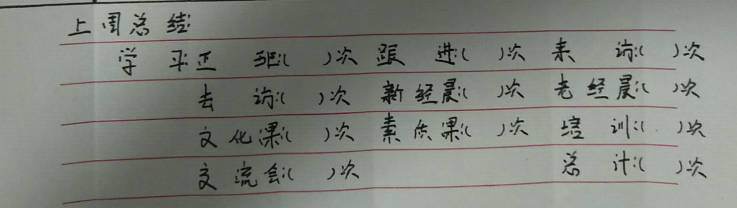 上周总结:
学平正 驱:( )次 跟 进( )次 来 访:( )次
去 访:( )次 新经晨:( )次 老经晨:( )次
文化课:( )次 素质课:( )次 培 训:( )次
交流会:( )次 总 计:( )次